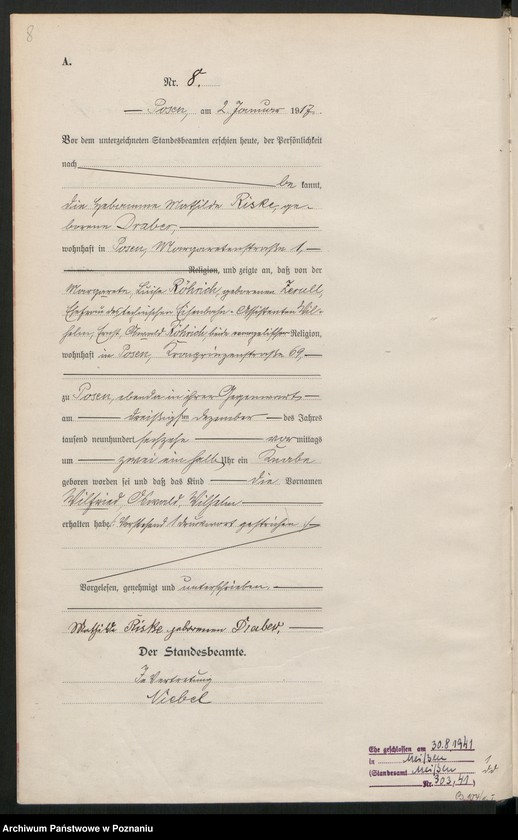 8
A.
Nr. 8.
Posen, am 2. Januar 1917.
Vor dem unterzeichneten Standesbeamten erschien heute, der Persönlichkeit
nach
be kannt,
die Hebamme Mathilde Riske, ge-
borene Draber,
wohnhaft in Posen, Margaretenstraße 1,
Religion, und zeigte an, daß von der
Margarete, Luise Röhrich, geborenen Zerull,
Ehefrau des technischen Eisenbahn-Assistenten Wil-
helm, Ernst, Oswald Röhrich, beide evangelischer Religion,
wohnhaft in Posen, Kronprinzenstraße 69,
zu Posen, ebenda in ihrer Gegenwart
am dreißigsten Dezember des Jahres
tausend neunhundert sechzehn vor mittags
um zwei ein halb Uhr ein Knabe
geboren worden sei und daß das Kind die Vornamen
Wilfried, Oswald, Wilhelm
erhalten habe. Vorstehend 1 Druckwort gestrichen
Vorgelesen, genehmigt und unterschrieben.
Mathilde Riske geborenen Draber.
Der Standesbeamte.
In Vertretung
Niebel
Ehe geschlossen am 30.8.1941
in Meißen
(Standesamt Meißen
Nr. 303/41)
Archiwum Państwowe w Poznaniu